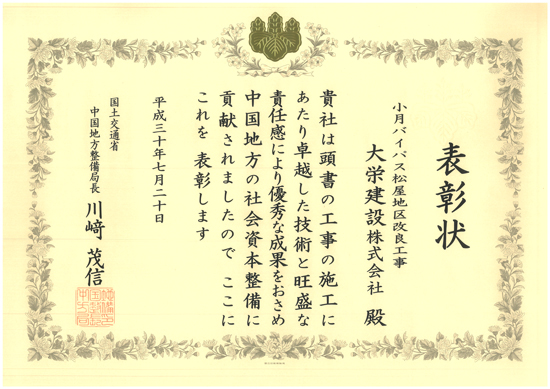 表彰状
小月バイパス松屋地区改良工事
大栄建設株式会社 殿
貴社は頭書の工事の施工に
あたり卓越した技術と旺盛な
責任感により優秀な成果をおさめ
中国地方の社会資本整備に
貢献されましたので ここに
これを 表彰します
平成三十年七月二十日
国土交通省
中国地方整備局長 川﨑 茂信